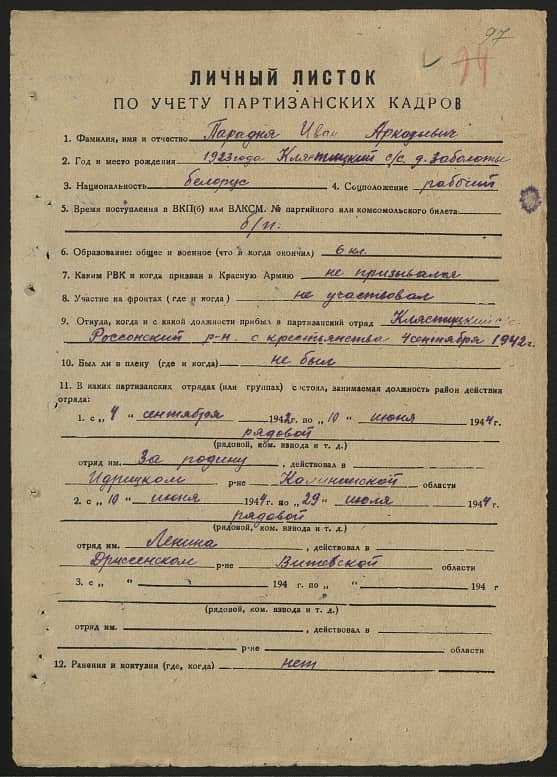 97
94
ЛИЧНЫЙ ЛИСТОК
ПО УЧЕТУ ПАРТИЗАНСКИХ КАДРОВ
1. Фамилия, имя и отчество Парадня Иван Аркадьвич
2. Год и место рождения 1923 года Клястицкий с/с. д. Заболоты
3. Национальность белорус 4. Соцположение рабочий
5. Время поступления в ВКП(б) или ВЛКСМ. № партийного или комсомольского билета
б/п.
6. Образование: общее и военное (что и когда окончил) 6 кл.
7. Каким РВК и когда призван в Красную Армию не призывался
8. Участие на фронтах (где и когда) не участвовал
9. Откуда, когда и с какой должности прибыл в партизанский отряд Клястицкий с/с.
Россонский р-н. с крестьянства 4 сентября 1942 г.
10. Был ли в плену (где и когда) не был
11. В каких партизанских отрядах (или группах) состоял, занимаемая должность район действия
отряда:
1. с „ 4 “ сентября 1942 г. по „ 10 “ июня 1944 г.
рядовой
(рядовой, ком. взвода и т. д.)
отряд им. За родину, действовал в
Идрицком р-не Калининской области
2. с „ 10 “ июня 1944 г. по „ 29 “ июля 1944 г.
рядовой
(рядовой, ком. взвода и т. д.)
отряд им. Ленина, действовал в
Дриссенском р-не Витебской области
3. с „ “ 194 г. по „ “ 194 г
(рядовой, ком. взвода и т. д.)
отряд им. , действовал в
р-не области
12. Ранения и контузии (где, когда) нет